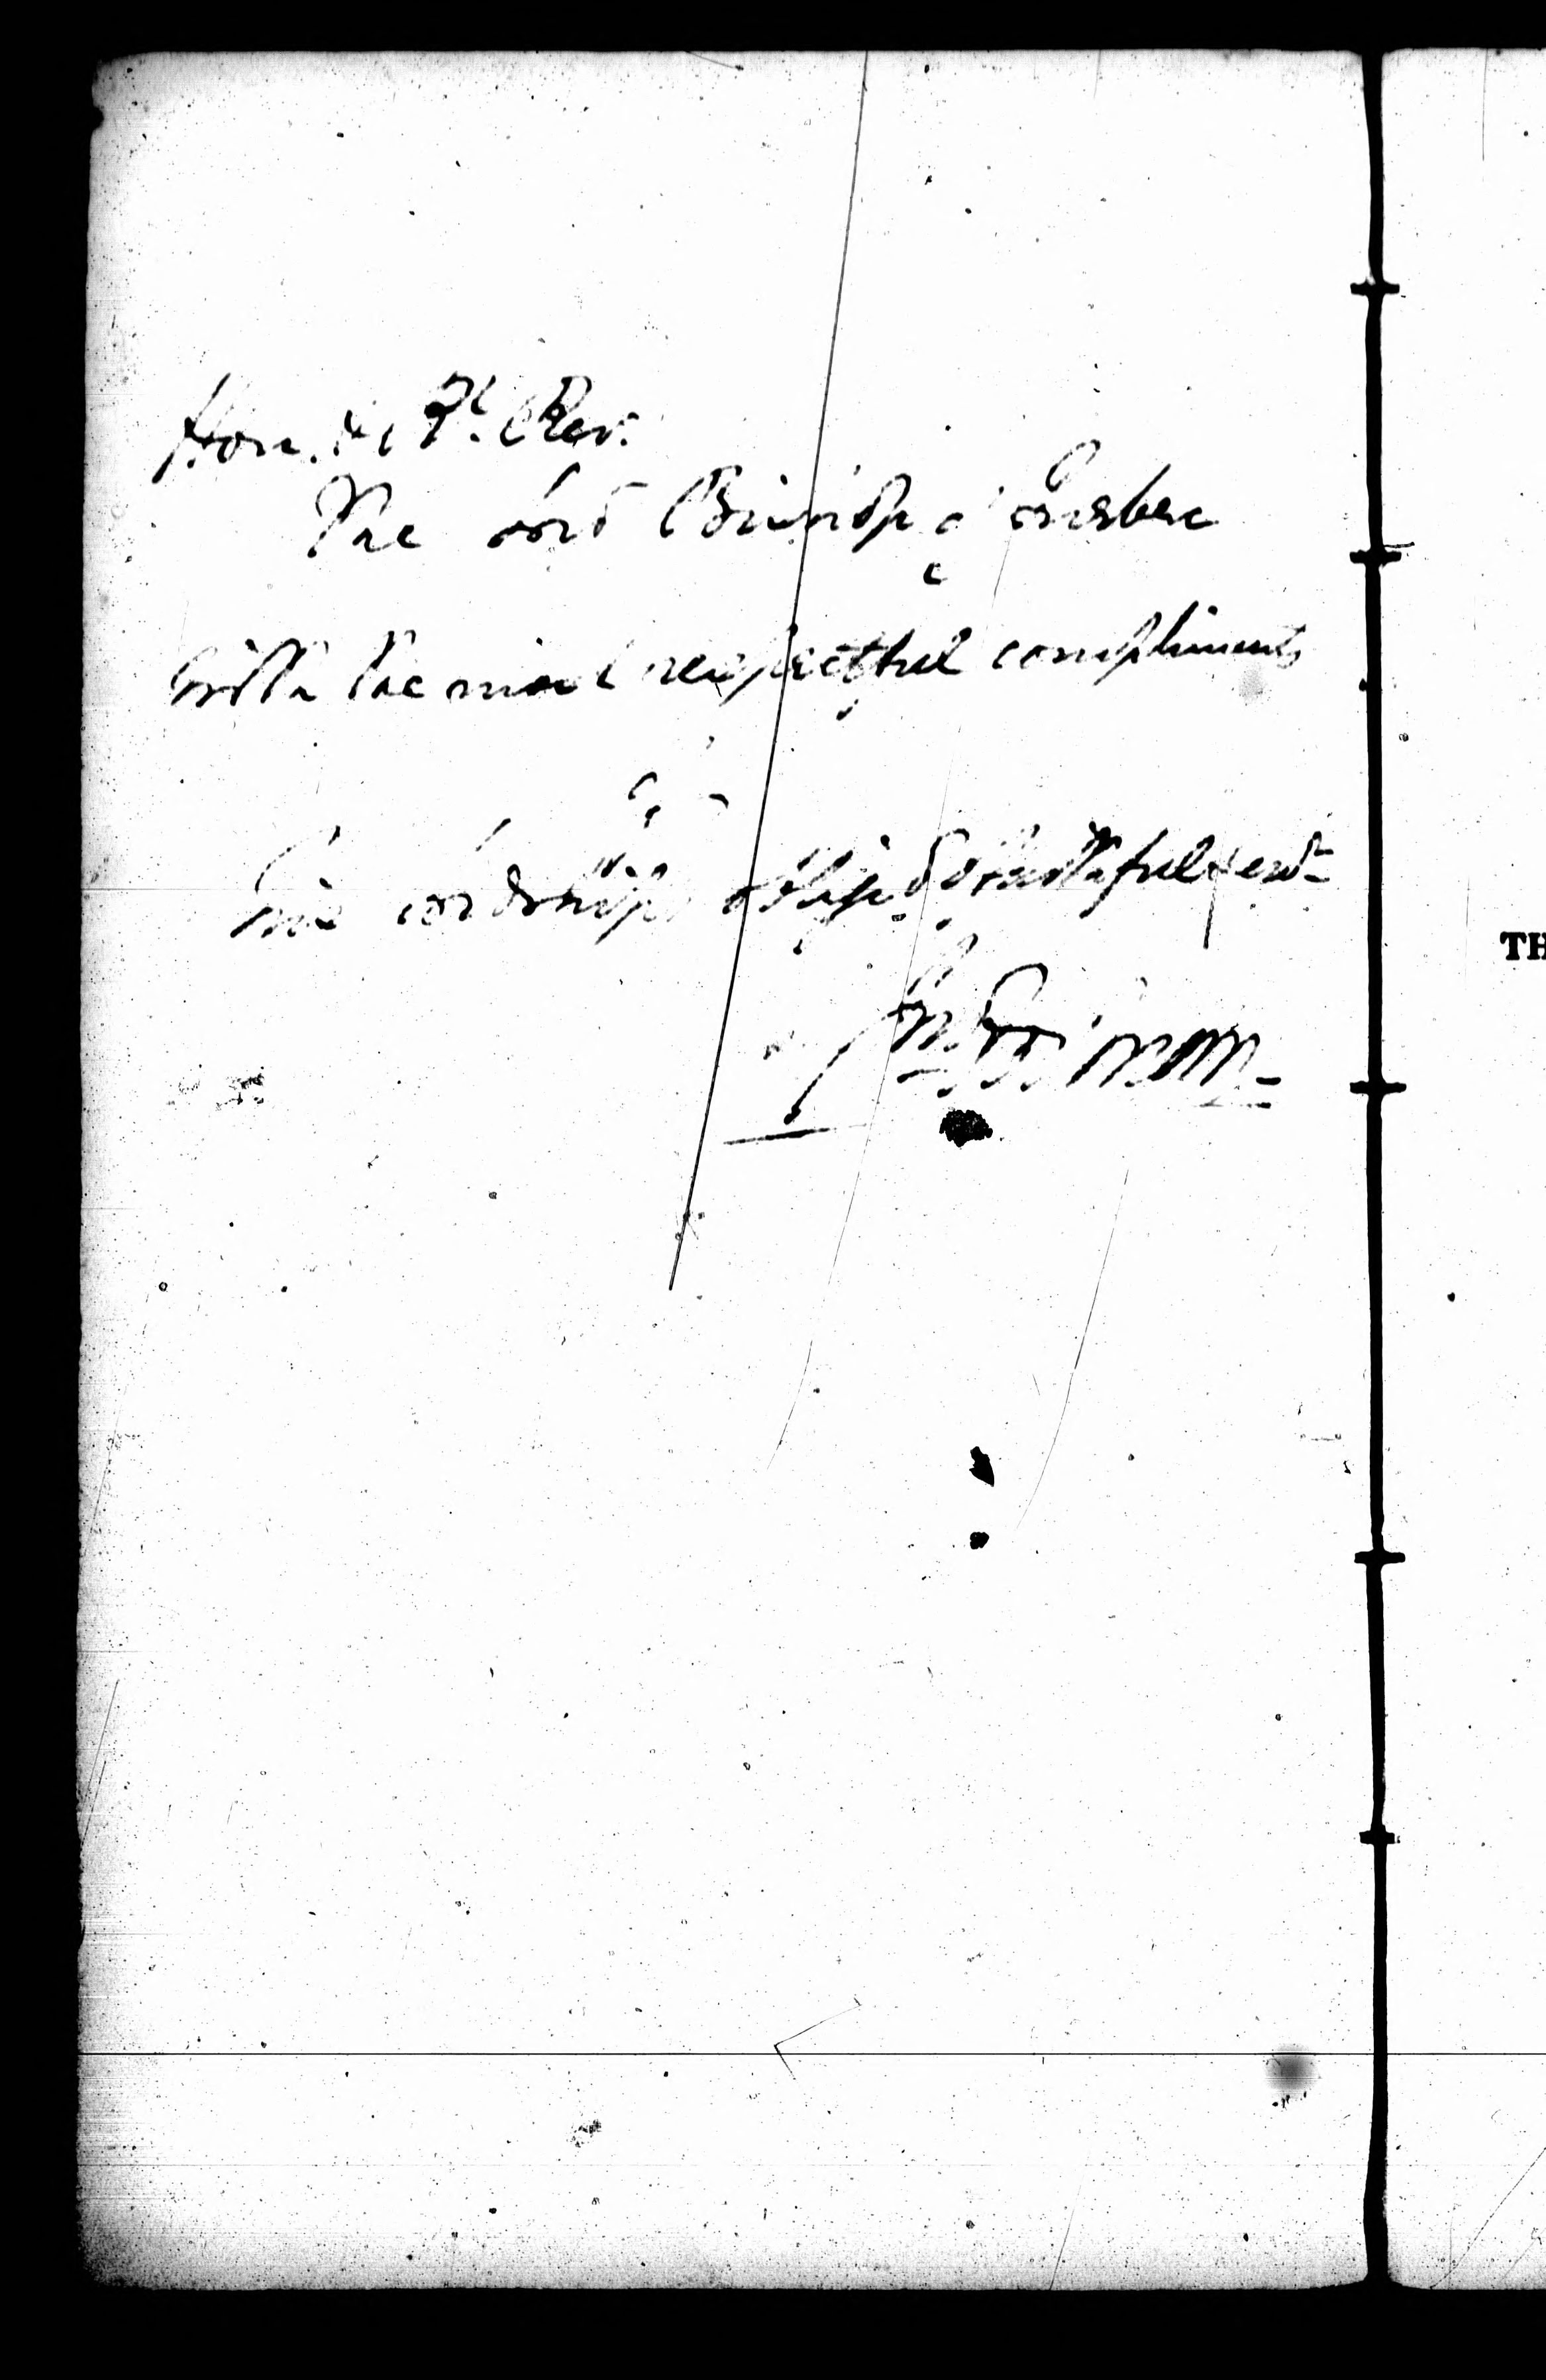 Hon. & Rt. Rev.
The Lord Bishop of Quebec
With the most respectful compliments
of
his Lordship's obliged & faithful servt
TH